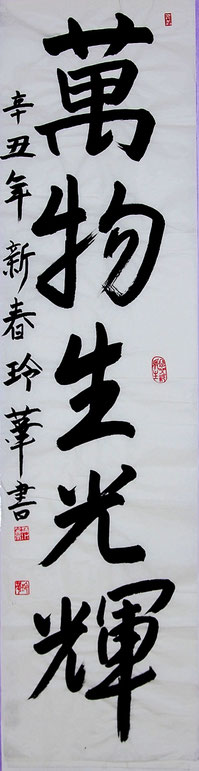 萬物生光輝
辛丑年新春玲華書